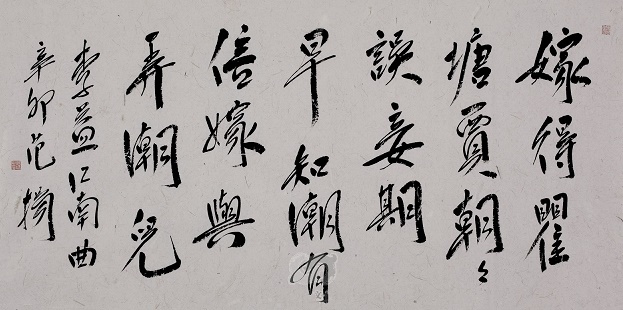 嫁得瞿
塘賈朝々
誤妾期
早知潮有
信嫁與
弄潮兒
李益江南曲
辛卯范揚